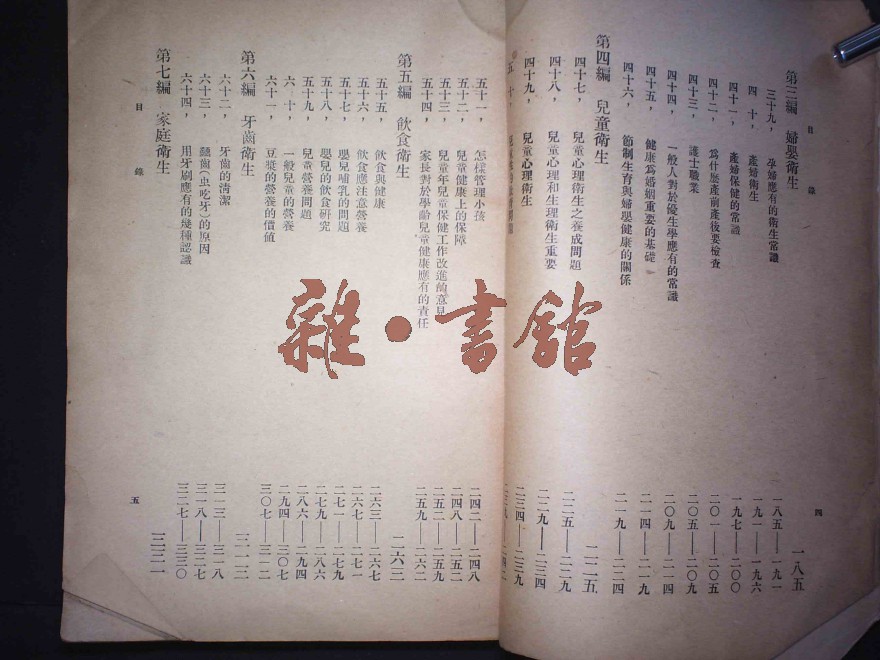 目錄
四
第三編　婦嬰衛生　一八五
三十九，孕婦應有的衛生常識　一八五——一九一
四十，產婦衛生　一九一——一九六
四十一，產婦保健的常識　一九七——二〇〇
四十二，為什麼產前產後要檢查　二〇一——二〇五
四十三，護士職業　二〇五——二〇九
四十四，一般人對於優生學應有的常識　二〇九——二一四
四十五，健康為婚姻重要的基礎　二一四——二一九
四十六，節制生育與婦嬰健康的關係　二一九——二二四
第四編　兒童衛生　二二五
四十七，兒童心理衛生之養成問題　二二五——二二九
四十八，兒童心理和生理衛生重要　二二九——二三四
四十九，兒童心理衛生　二三四——二三九
五十，
五十一，怎樣管理小孩　二四二——二四八
五十二，兒童健康上的保障　二四八——二五二
五十三，兒童年兒童保健工作改進的意見　二五二——二五九
五十四，家長對於學齡兒童健康應有的責任　二五九——二六二
第五編　飲食衛生　二六三
五十五，飲食與健康　二六三——二六七
五十六，飲食應注意營養　二六七——二七一
五十七，嬰兒哺乳的問題　二七一——二七九
五十八，嬰兒的飲食研究　二七九——二八六
五十九，兒童營養問題　二八六——二九四
六十，一般兒童的營養　二九四——三〇七
六十一，豆漿的營養的價值　三〇七——三一二
第六編　牙齒衛生　三一三
六十二，牙齒的清潔　三一三——三一八
六十三，齲齒(虫吃牙)的原因　三一八——三二七
六十四，用牙刷應有的幾種認識　三二七——三三〇
第七編　家庭衛生　三三一
目錄
五
雜·書館